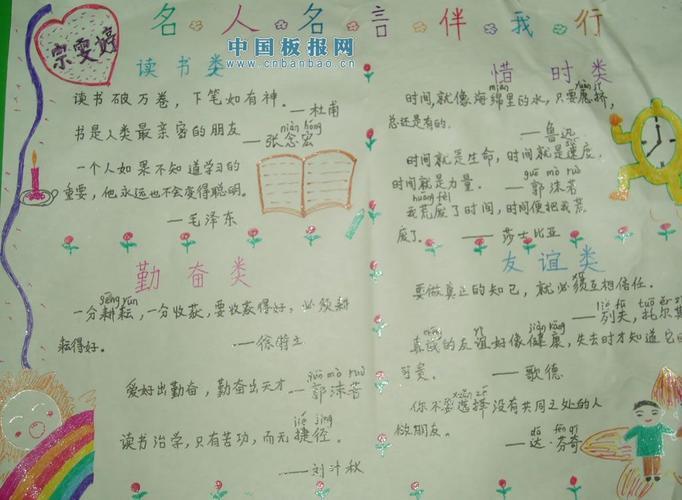 宗雯婷
名人名言伴我行
中国板报网
www.cnbanbao.cn
读书类
读书破万卷，下笔如有神。——杜甫
书是人类最亲密的朋友
niàn hóng
——张念宏
一个人如果不知道学习的
重要，他永远也不会变得聪明。
——毛泽东
勤奋类
gēng yún
一分耕耘，一分收获，要收获得好，必须耕
耘得好。
——徐特立
guō mò ruò
爱好出勤奋，勤奋出天才——郭沫若
jié jìng
读书治学，只有苦功，而无捷径。
——刘汁秋
惜时类
mián
时间，就像海绵里的水，只要愿挤，
jǐ
总还是有的。
——鲁迅
时间就是生命，时间就是速度，
guō mò ruò
时间就是力量。——郭沫若
huāng fèi
我荒废了时间，时间便把我荒
废了。——莎士比亚
友谊类
要做真正的知己，就必须互相信任。
liè fū tuō ěr
——列夫·托尔斯
jiàn kāng
真诚的友谊好像健康，失去时才知道它
可贵。——歌德
xuǎn zé
你不要选择没有共同之处的人
做朋友。
dá fēn qí
——达·芬奇